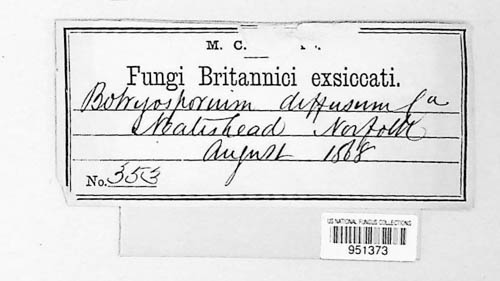 M. C.
Fungi Britannici exsiccati.
Botryosporium diffusum Ca
Neatishead Norfolk
August 1868
No. 353
US NATIONAL FUNGUS COLLECTIONS
951373